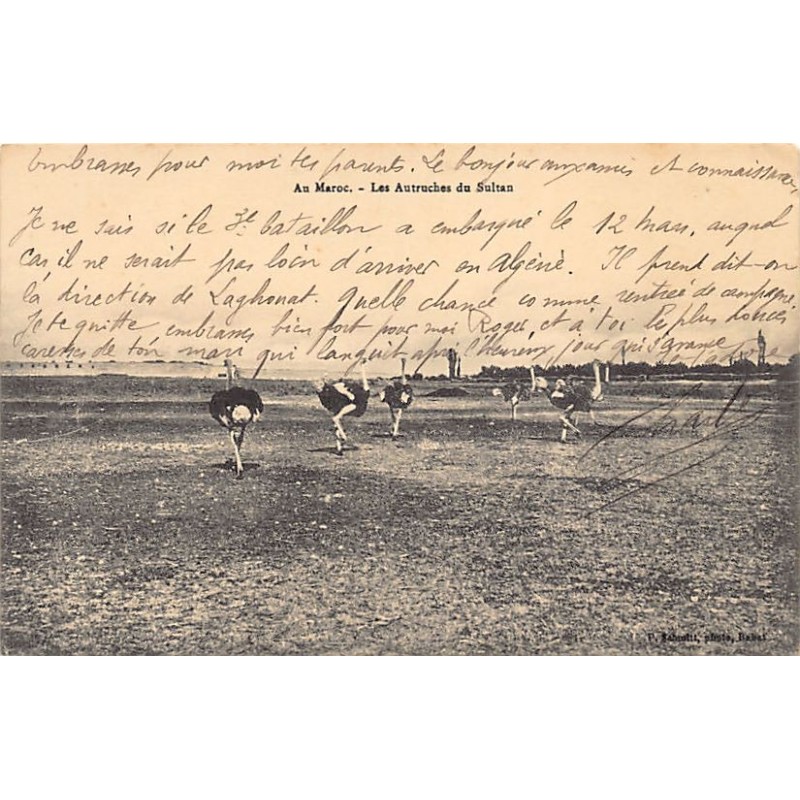 Embrasses pour moi tes parents. Le bonjour aux amis et connaissances,
Au Maroc. - Les Autruches du Sultan
Je ne sais si le 3e bataillon a embarqué le 12 Mars, auquel
cas, il ne serait pas loin d'arriver en Algérie. Il prend dit-on
la direction de Laghouat. Quelle chance comme rentrée de campagne.
Je te quitte, embrasses bien fort pour moi Roger, et à toi le plus douces
caresses de ton mari qui languit après l'heureux jour qui s'
P. Schmitt, photo, Rabat